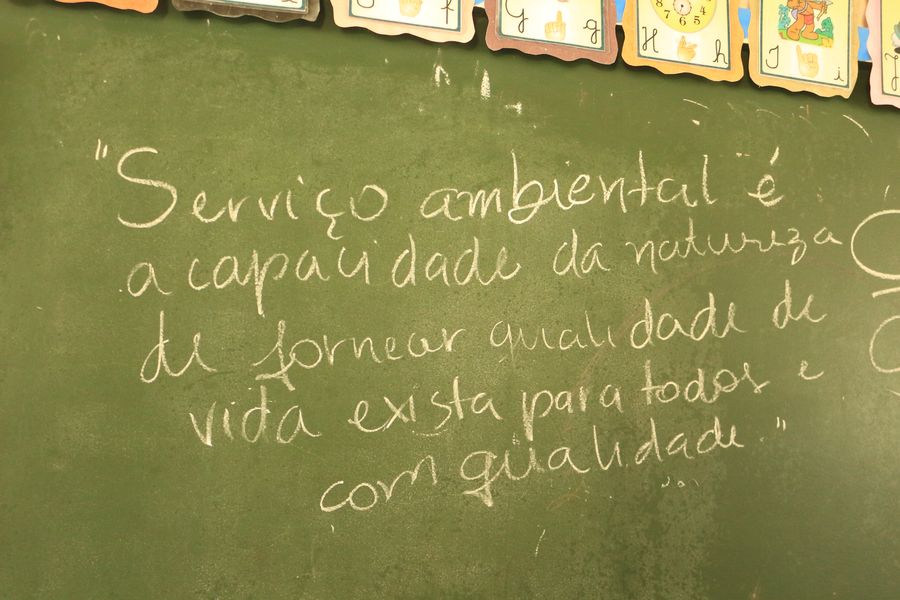 f
G g
7 6 5 4
H h
I i
"Serviço ambiental é
a capacidade da natureza
de fornecer qualidade de
vida exista para todos e
com qualidade."